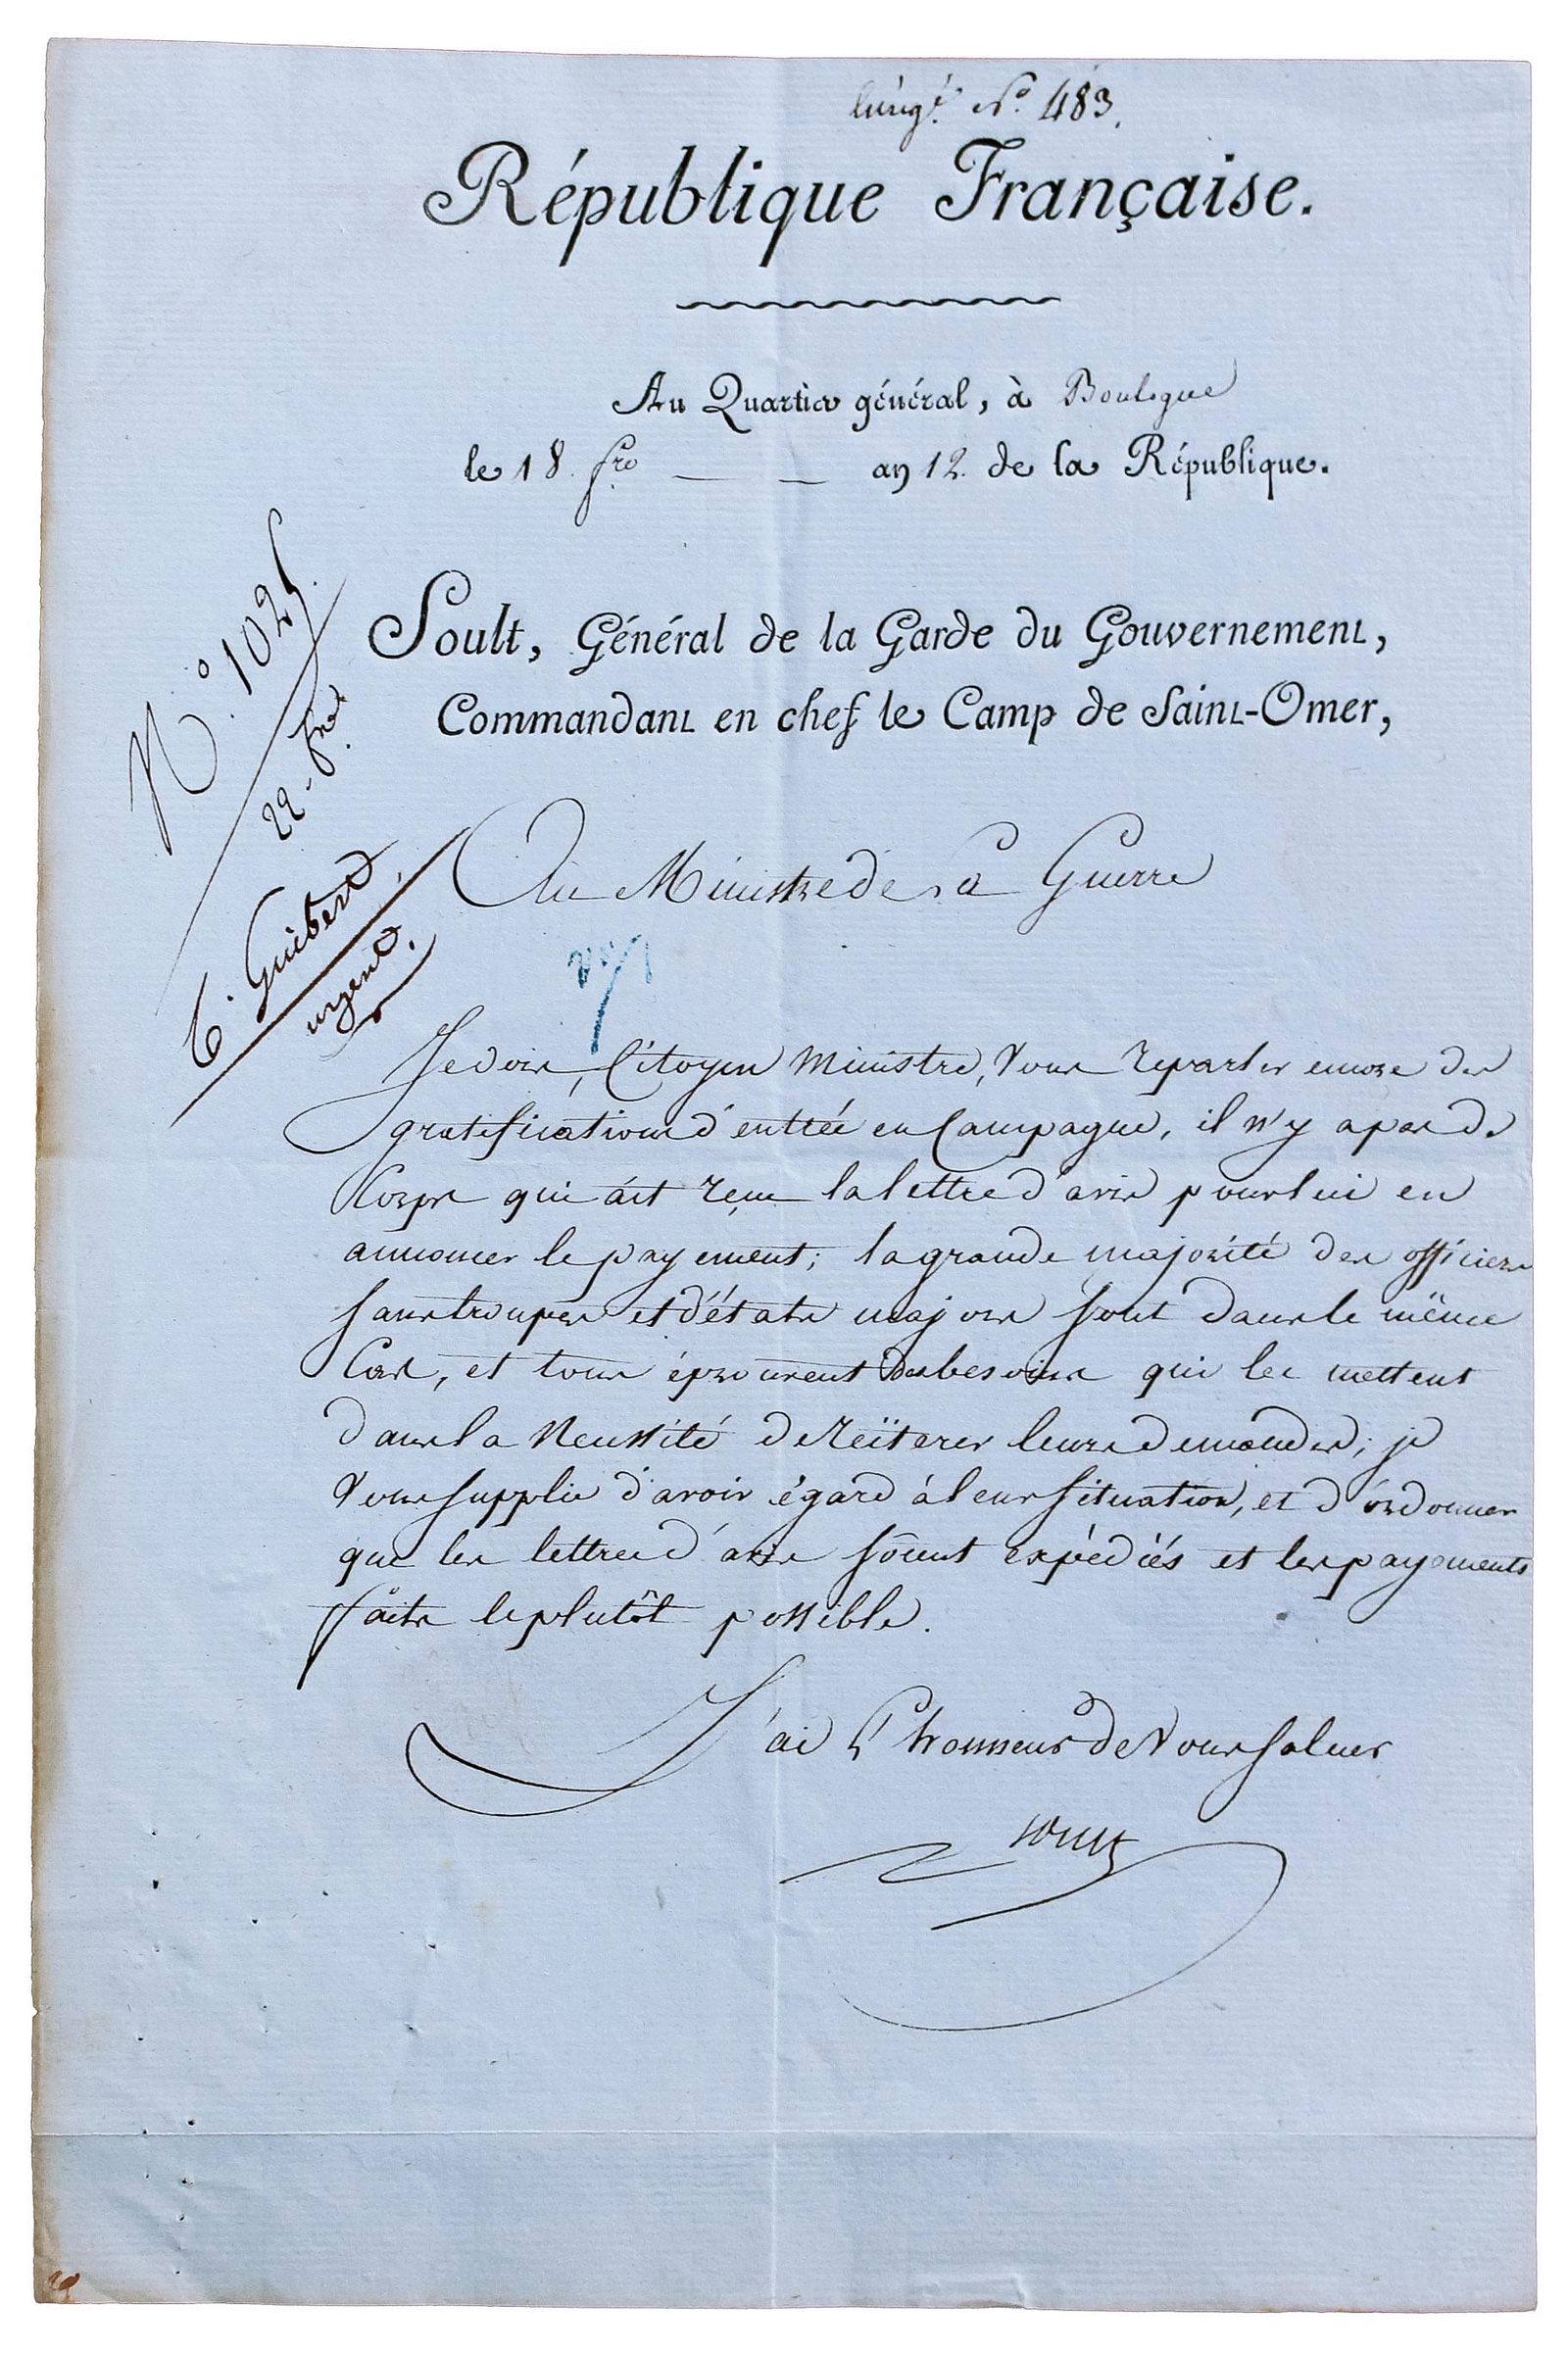 Enregé. No. 483.
République Française.
Au Quartier général, à Boulogne
le 18. fre. an 12. de la République.
No. 1025.
22 fre.
Soult, Général de la Garde du Gouvernement,
Commandant en chef le Camp de Saint-Omer,
Au Ministre de la Guerre
C. Guibert.
urgent.
Je dois, Citoyen Ministre, Vous reparler encore des
gratifications d'entrée en Campagne, il n'y a pas de
Corps qui áit reçu la lettre d'avis pour lui en
annoncer le payement; la grande majorité des officiers
sans troupes et d'états majors sont dans le même
Cas, et tous éprouvent des besoins qui les mettent
dans la Necessité de réïterer leurs demandes; je
Vous supplie d'avoir égard à leur situation, et d'ordonner
que les lettres d'avis soient expédiés et les payements
faits le plutôt possible.
J'ai l'honneur de Vous saluer
Soult